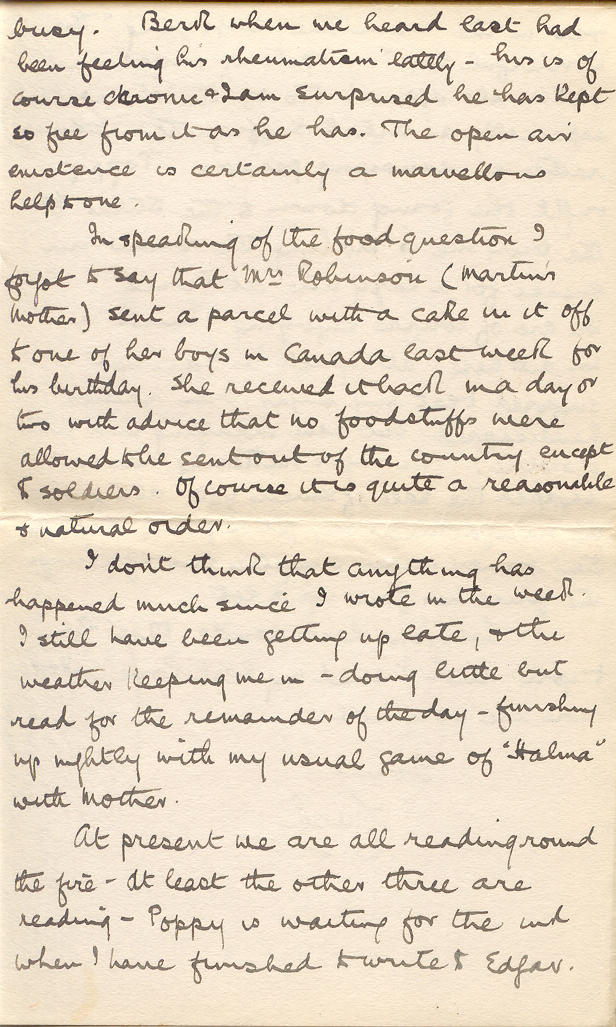 busy. Bert when we heard last had
been feeling his rheumatism lately - his is of
course chronic & I am surprised he has kept
so free from it as he has. The open air
existence is certainly a marvellous
help to one.
In speaking of the food question I
forgot to say that Mrs Robinson (Martin's
Mother) sent a parcel with a cake in it off
to one of her boys in Canada last week for
his birthday. She received it back in a day or
two with advice that no foodstuffs were
allowed to be sent out of the country except
to soldiers. Of course it is quite a reasonable
& natural order.
I don't think that anything has
happened much since I wrote in the week.
I still have been getting up late, & the
weather keeping me in - doing little but
read for the remainder of the day - finishing
up nightly with my usual game of "Halma"
with Mother.
At present we are all reading round
the fire - At least the other three are
reading - Poppy is waiting for the ink
when I have finished to write to Edgar.